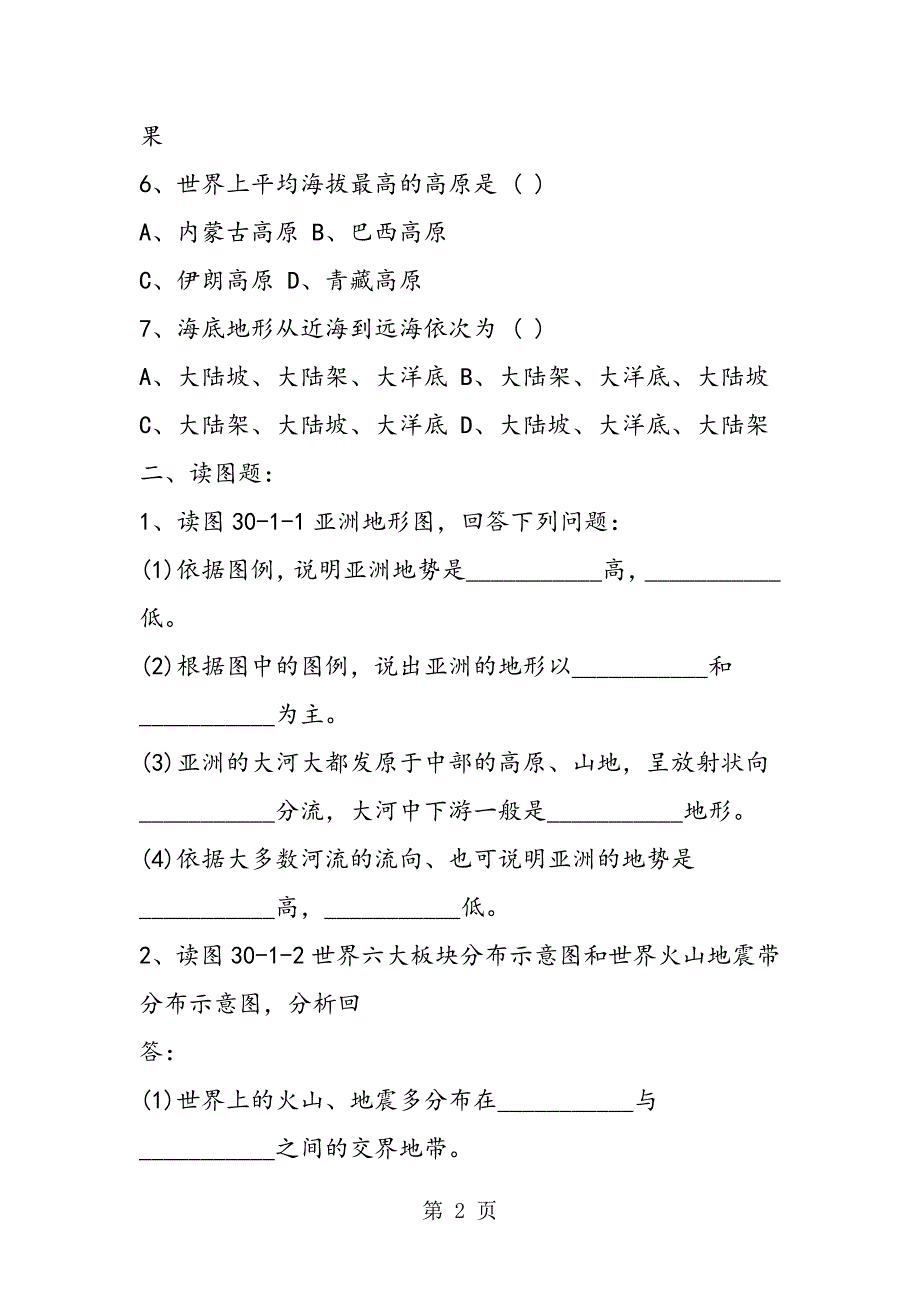 果
6、世界上平均海拔最高的高原是 ( )
A、内蒙古高原 B、巴西高原
C、伊朗高原 D、青藏高原
7、海底地形从近海到远海依次为 ( )
A、大陆坡、大陆架、大洋底 B、大陆架、大洋底、大陆坡
C、大陆架、大陆坡、大洋底 D、大陆坡、大洋底、大陆架
二、读图题：
1、读图 30-1-1 亚洲地形图，回答下列问题：
(1)依据图例，说明亚洲地势是___________高，___________
低。
(2)根据图中的图例，说出亚洲的地形以___________和
___________为主。
(3)亚洲的大河大都发原于中部的高原、山地，呈放射状向
___________分流，大河中下游一般是___________地形。
(4)依据大多数河流的流向、也可说明亚洲的地势是
___________高，___________低。
2、读图 30-1-2 世界六大板块分布示意图和世界火山地震带
分布示意图，分析回
答：
(1)世界上的火山、地震多分布在___________与
___________之间的交界地带。
第 2 页